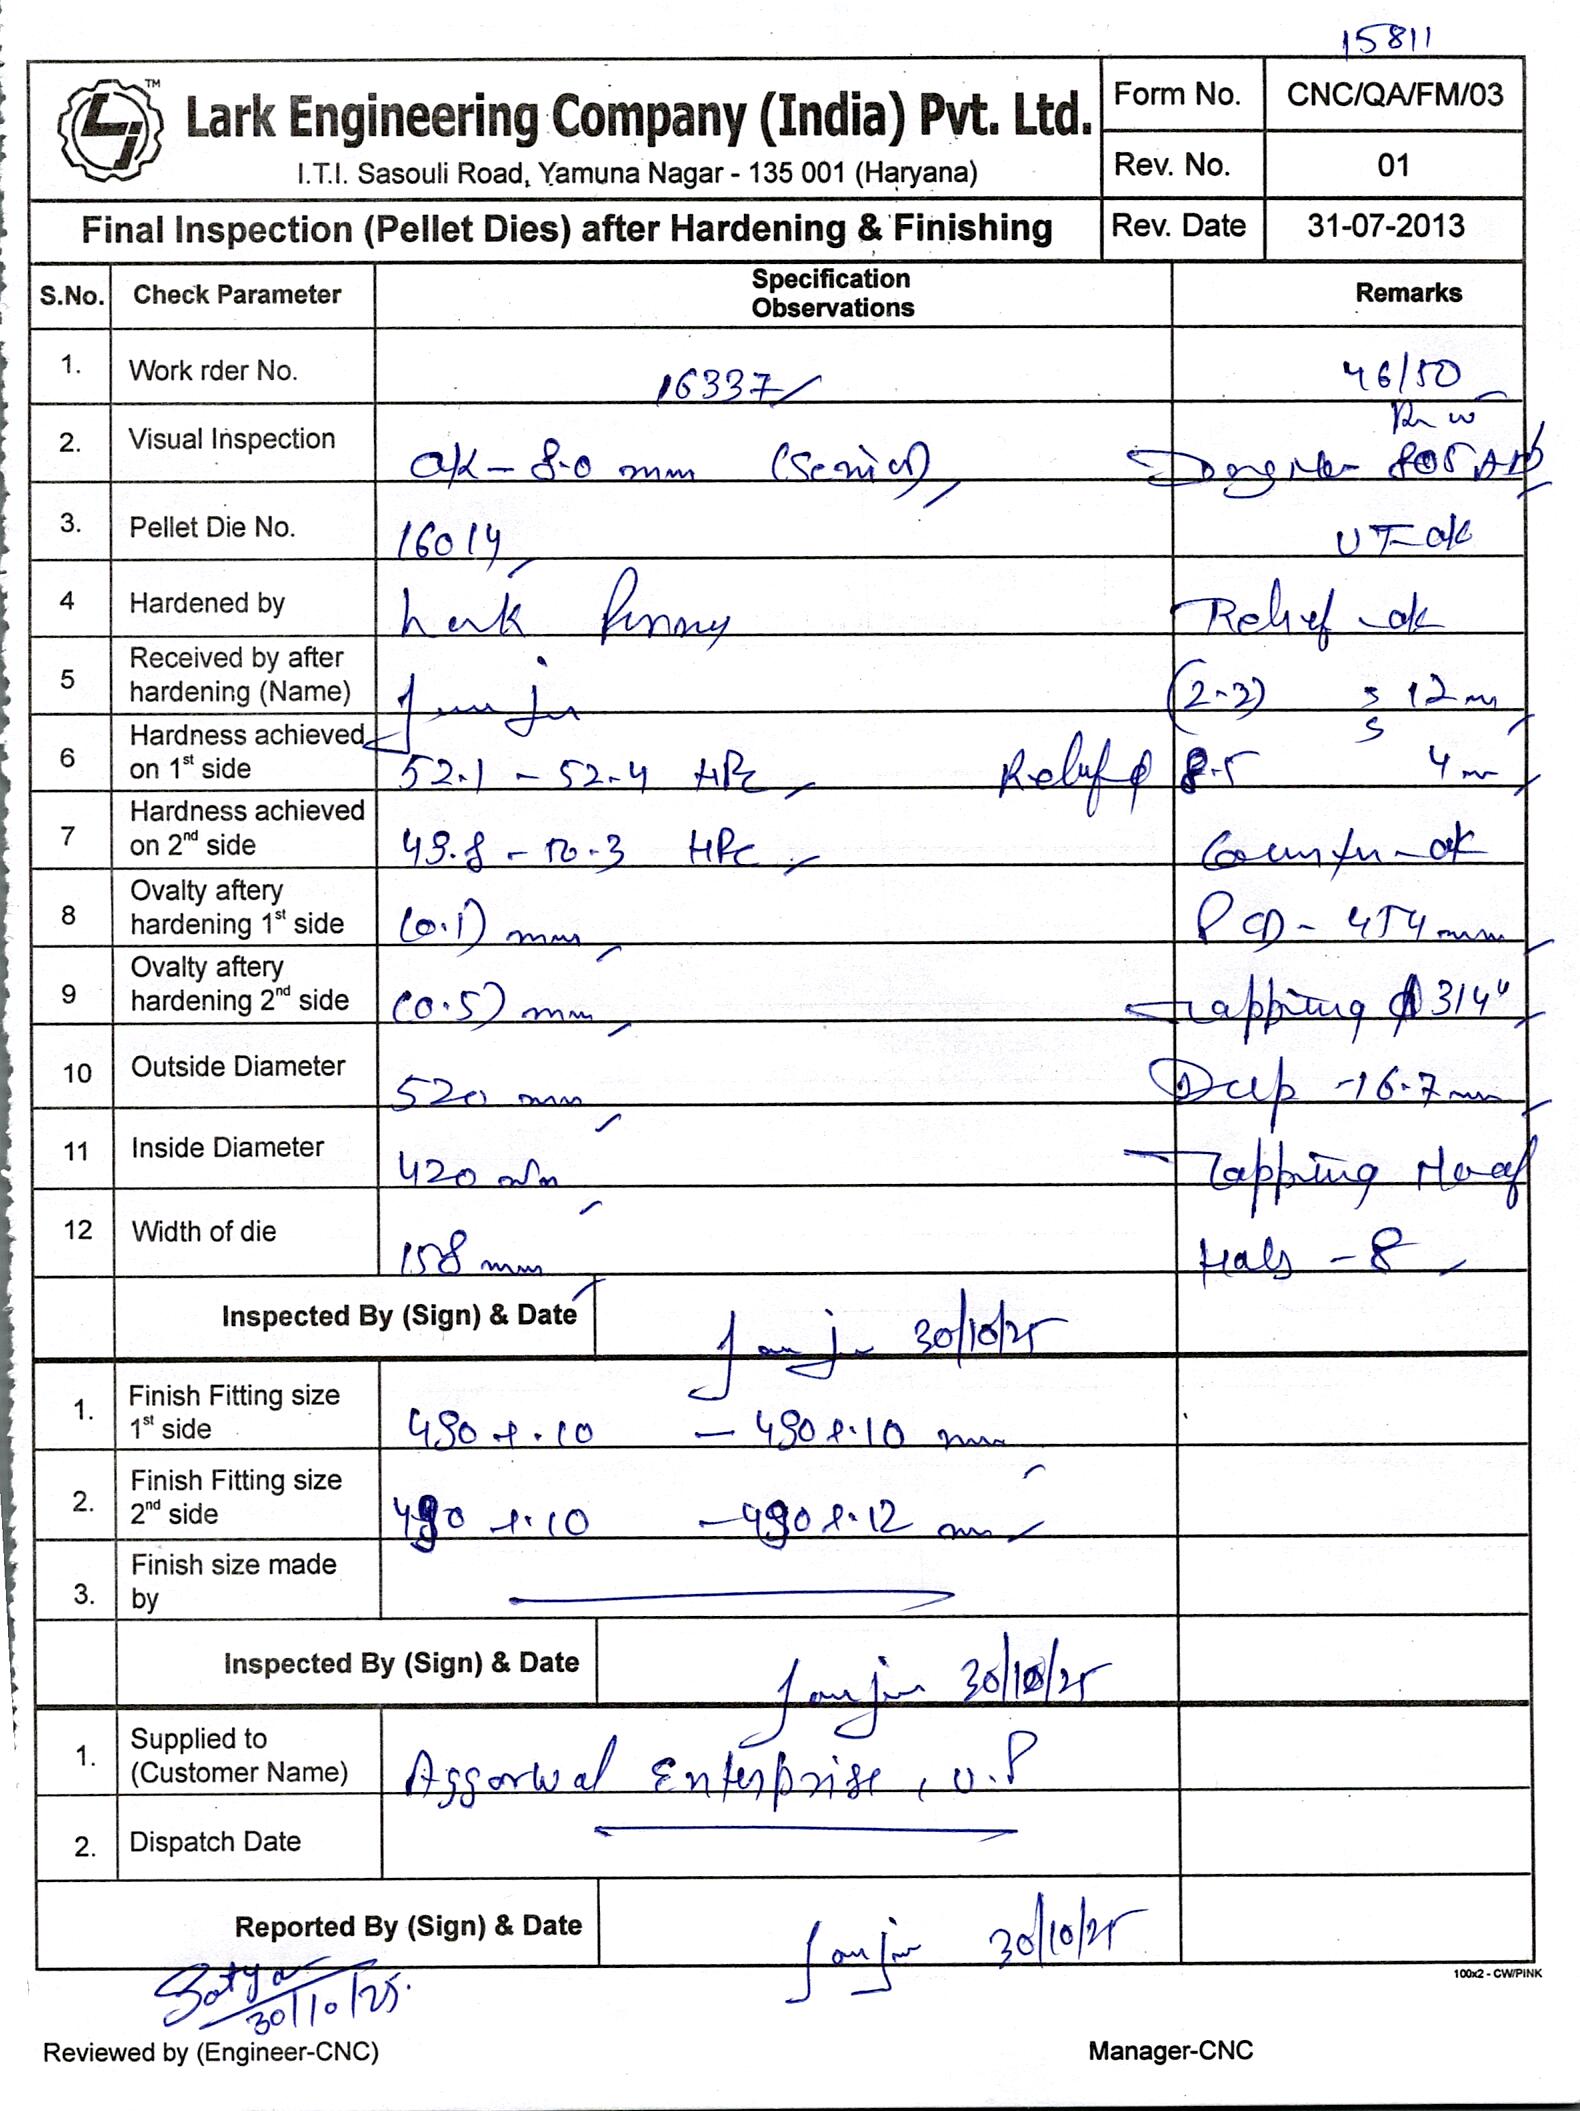 15811
Lark Engineering Company (India) Pvt. Ltd.
TM
I.T.I. Sasouli Road, Yamuna Nagar - 135 001 (Haryana)
Form No. CNC/QA/FM/03
Rev. No. 01
Final Inspection (Pellet Dies) after Hardening & Finishing
Rev. Date 31-07-2013
S.No. Check Parameter Specification Observations Remarks
1. Work rder No. 16337 46/50
2. Visual Inspection OK - 8.0 mm 
3. Pellet Die No. 16014 UT-ok
4 Hardened by Lark Relief - ok
5 Received by after hardening (Name) (2-3) 12 m
6 Hardness achieved on 1st side 52.1 - 52.4 HRc Relief ϕ 8.5 4 m
7 Hardness achieved on 2nd side 49.8 - 50.3 HRc Counter - ok
8 Ovalty aftery hardening 1st side (0.1) mm PCD - 454 mm
9 Ovalty aftery hardening 2nd side (0.5) mm Tapping ϕ 3/4"
10 Outside Diameter 520 mm Deep - 16.7 mm
11 Inside Diameter 420 mm Tapping No of
12 Width of die 158 mm Hols - 8
Inspected By (Sign) & Date 30/10/25
1. Finish Fitting size 1st side 490 +.10 - 490 +.10 mm
2. Finish Fitting size 2nd side 490 +.10 - 490 +.12 mm
3. Finish size made by
Inspected By (Sign) & Date 30/10/25
1. Supplied to (Customer Name) Aggarwal Enterprise, U.P
2. Dispatch Date
Reported By (Sign) & Date 30/10/25
100x2 - CW/PINK
Satya
30/10/25.
Reviewed by (Engineer-CNC) Manager-CNC